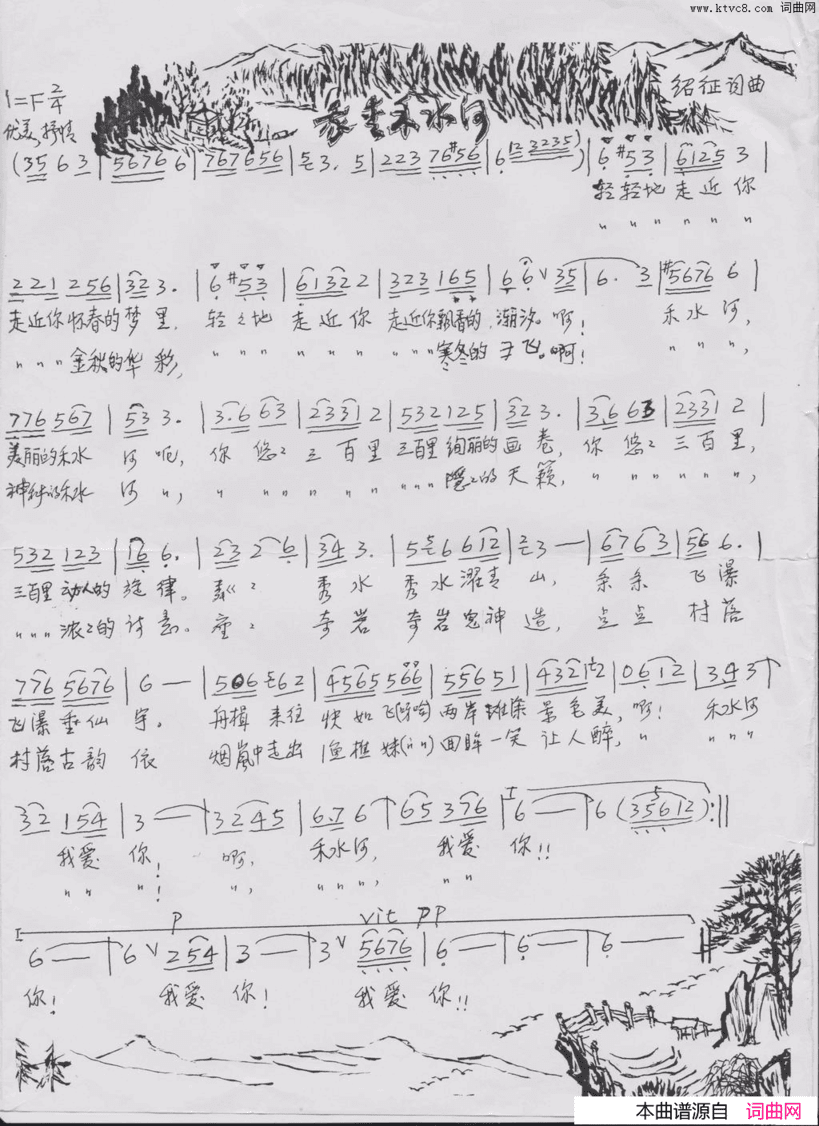 www.ktvc8.com 词曲网
1=F 2/4
绍征词曲
优美,抒情
禾水河
(35 6 3 | 5676 6 | 767656 | 5 3. 5 | 223 76#56 | 6 12 3235) | 6 #5 3 | 6125 3 |
轻轻地 走近你
" " " " " "
221 256 | 32 3. | 6 #5 3 | 6132 2 | 323 165 | 6 6 V 35 | 6. 3 | #5676 6 |
走近你怀春的梦里, 轻轻地 走近你 走近你飘香的 潮汐。啊! 禾水河,
" " " 金秋的华彩, " " " " " " " " " 寒冬的 飞。啊! " " ",
776 567 | 53 3. | 3.6 63 | 2331 2 | 532 125 | 32 3. | 36 63 | 2331 2 |
美丽的禾水 河呃, 你悠悠三百里三百里绚丽的画卷, 你悠悠三百里,
神奇的禾水 河 ", " " " " " " " " " 隐隐的天籁, " " " " " ",
532 123 | 16 6. | 23 2 6 | 34 3. | 5 5 6 612 | 2 3 — | 6763 | 56 6. |
三百里动人的旋律。 秀水 秀水濯青山, 条条 飞瀑
" " " 浓浓的诗意。座座 奇岩 奇岩鬼神造, 点点 村落
776 5676 | 6 — | 506 562 | 4565 566 | 556 51 | 432 12 | 0612 | 343
飞瀑垂仙宇。 舟楫来往 快如飞(呀哈) 两岸 景色美, 啊! 禾水河
村落古韵依 烟岚中走出 渔樵妹(" ") 回眸一笑 让人醉, " " " "
32 154 | 3 — | 3245 | 67 6 | 65 376 | 6 — | 6 (35612) :||
我爱 你! 啊, 禾水河, 我爱 你!!
" " "! ", " " ", " "
p vit pp
6 — | 6 V 254 | 3 — | 3 V 5676 | 6 — | 6 — | 6 — ||
你! 我爱 你! 我爱 你!!
本曲谱源自 词曲网